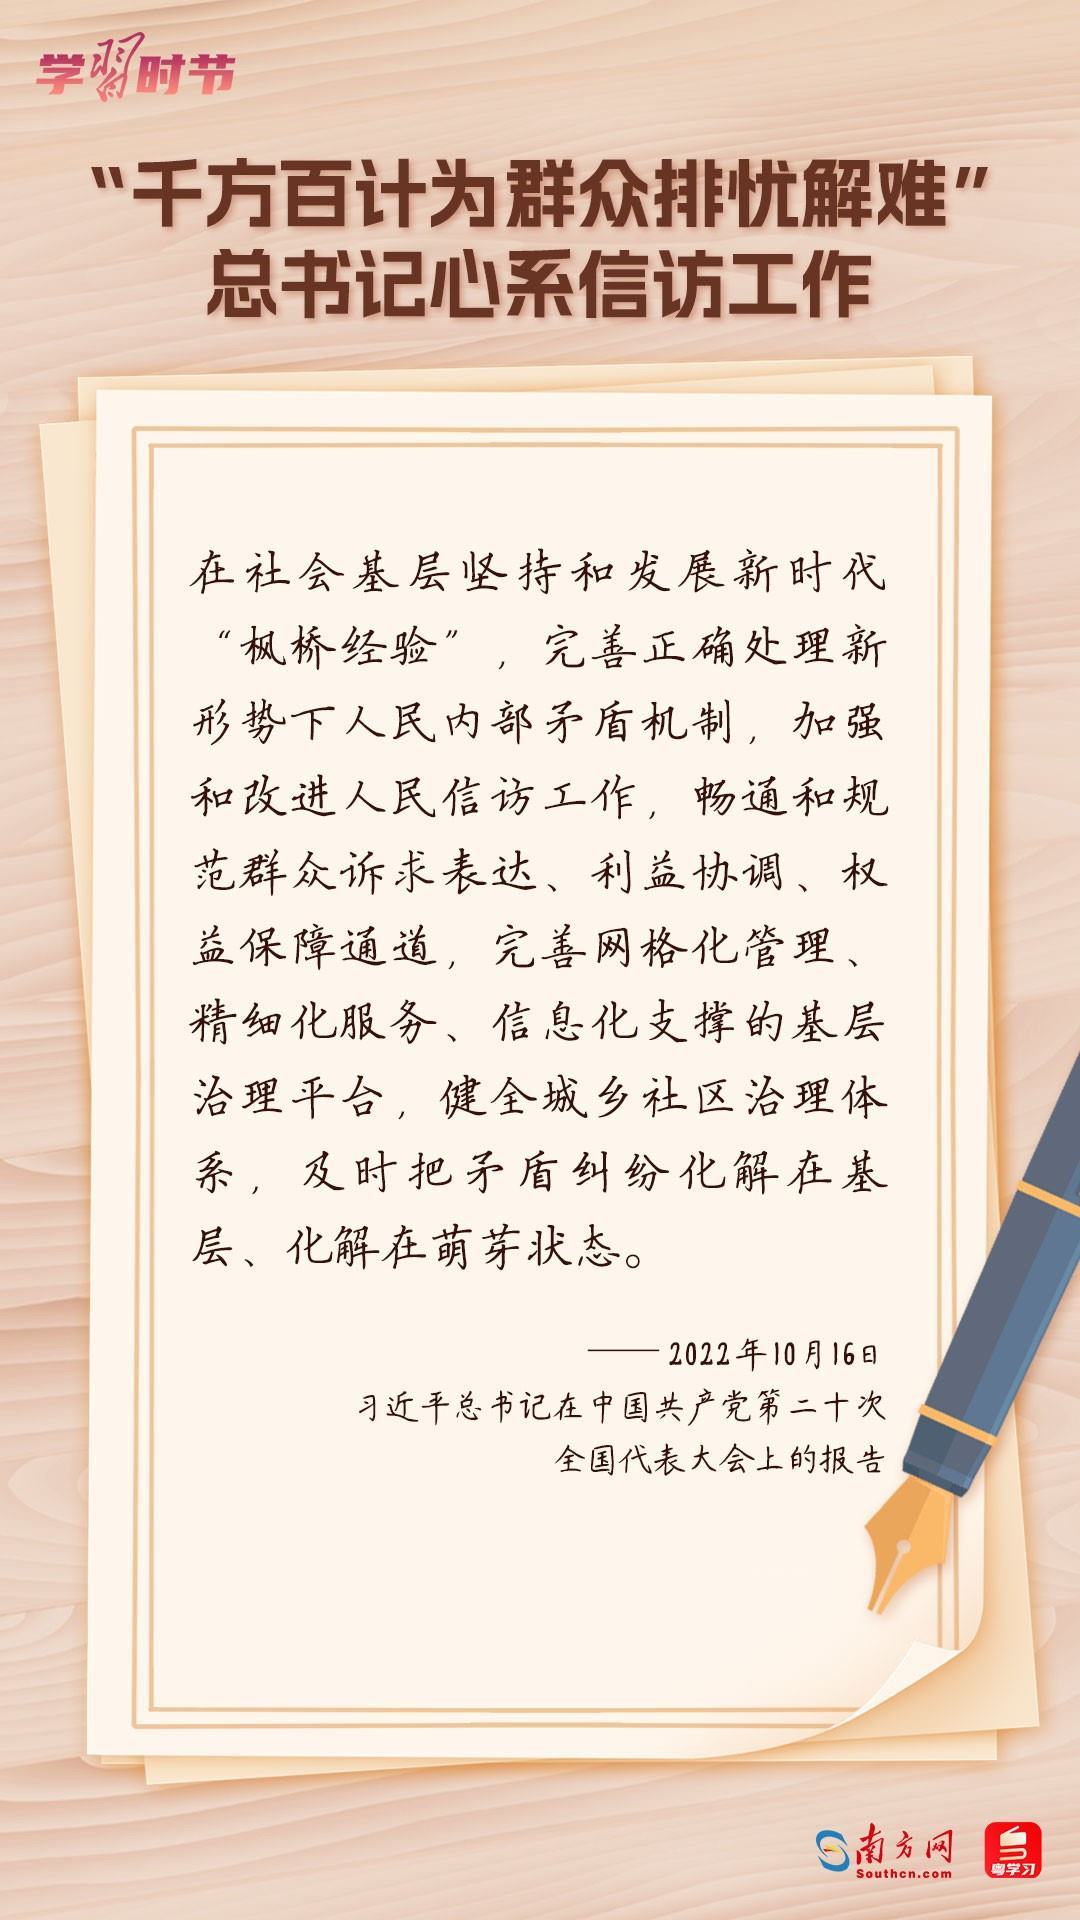 学习时节
“千方百计为群众排忧解难”
总书记心系信访工作
在社会基层坚持和发展新时代
“枫桥经验”，完善正确处理新
形势下人民内部矛盾机制，加强
和改进人民信访工作，畅通和规
范群众诉求表达、利益协调、权
益保障通道，完善网格化管理、
精细化服务、信息化支撑的基层
治理平台，健全城乡社区治理体
系，及时把矛盾纠纷化解在基
层、化解在萌芽状态。
——2022年10月16日
习近平总书记在中国共产党第二十次
全国代表大会上的报告
南方网
Southcn.com
粤学习